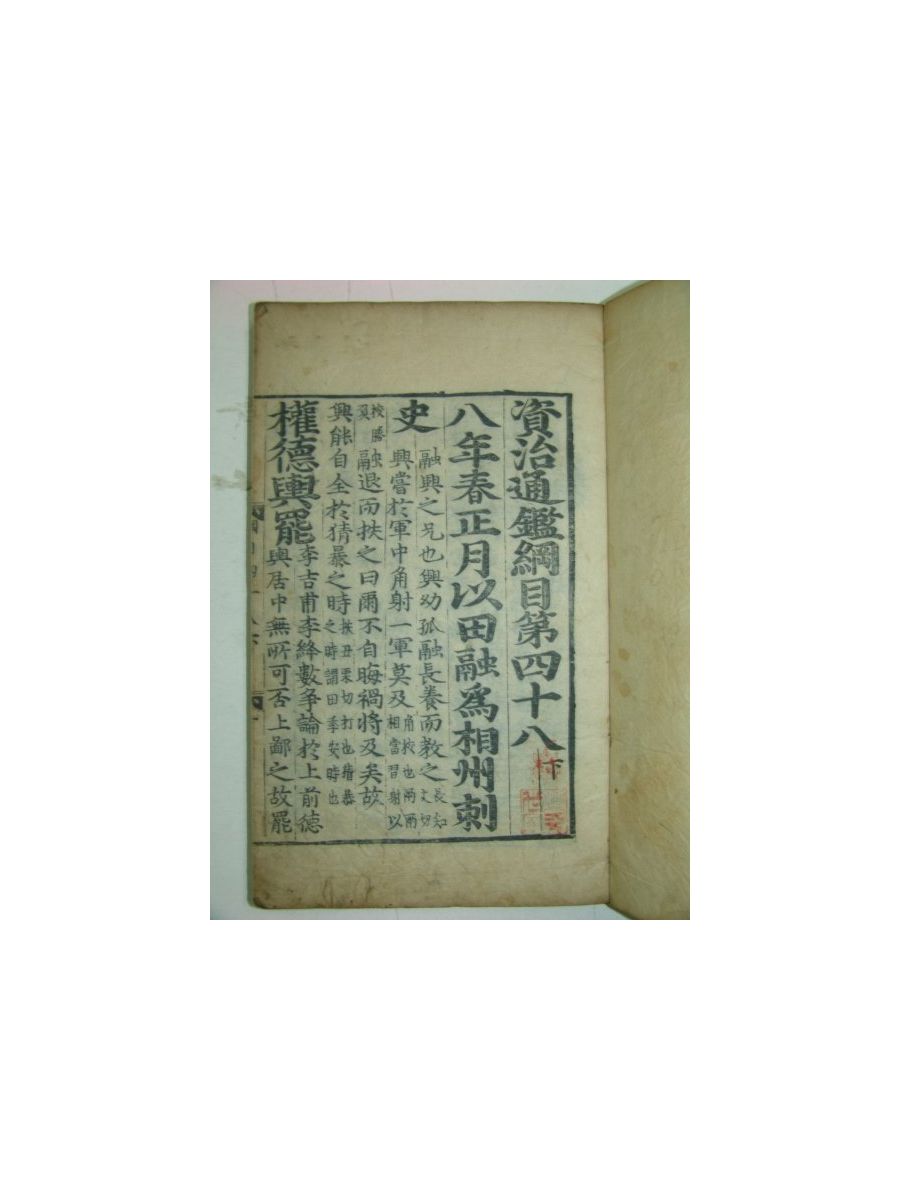 資治通鑑綱目第四十八下
八年春正月以田融為相州刺
史
融興之兄也興幼孤融長養而教之長知丈切
興嘗於軍中角射一軍莫及角校也兩兩相當習射以
校勝負融退而抶之曰爾不自晦禍將及矣故
興能自全於猜暴之時抶丑栗切打也猜暴之時謂田季安時也
權德輿罷
李吉甫李絳數爭論於上前德
輿居中無所可否上鄙之故罷